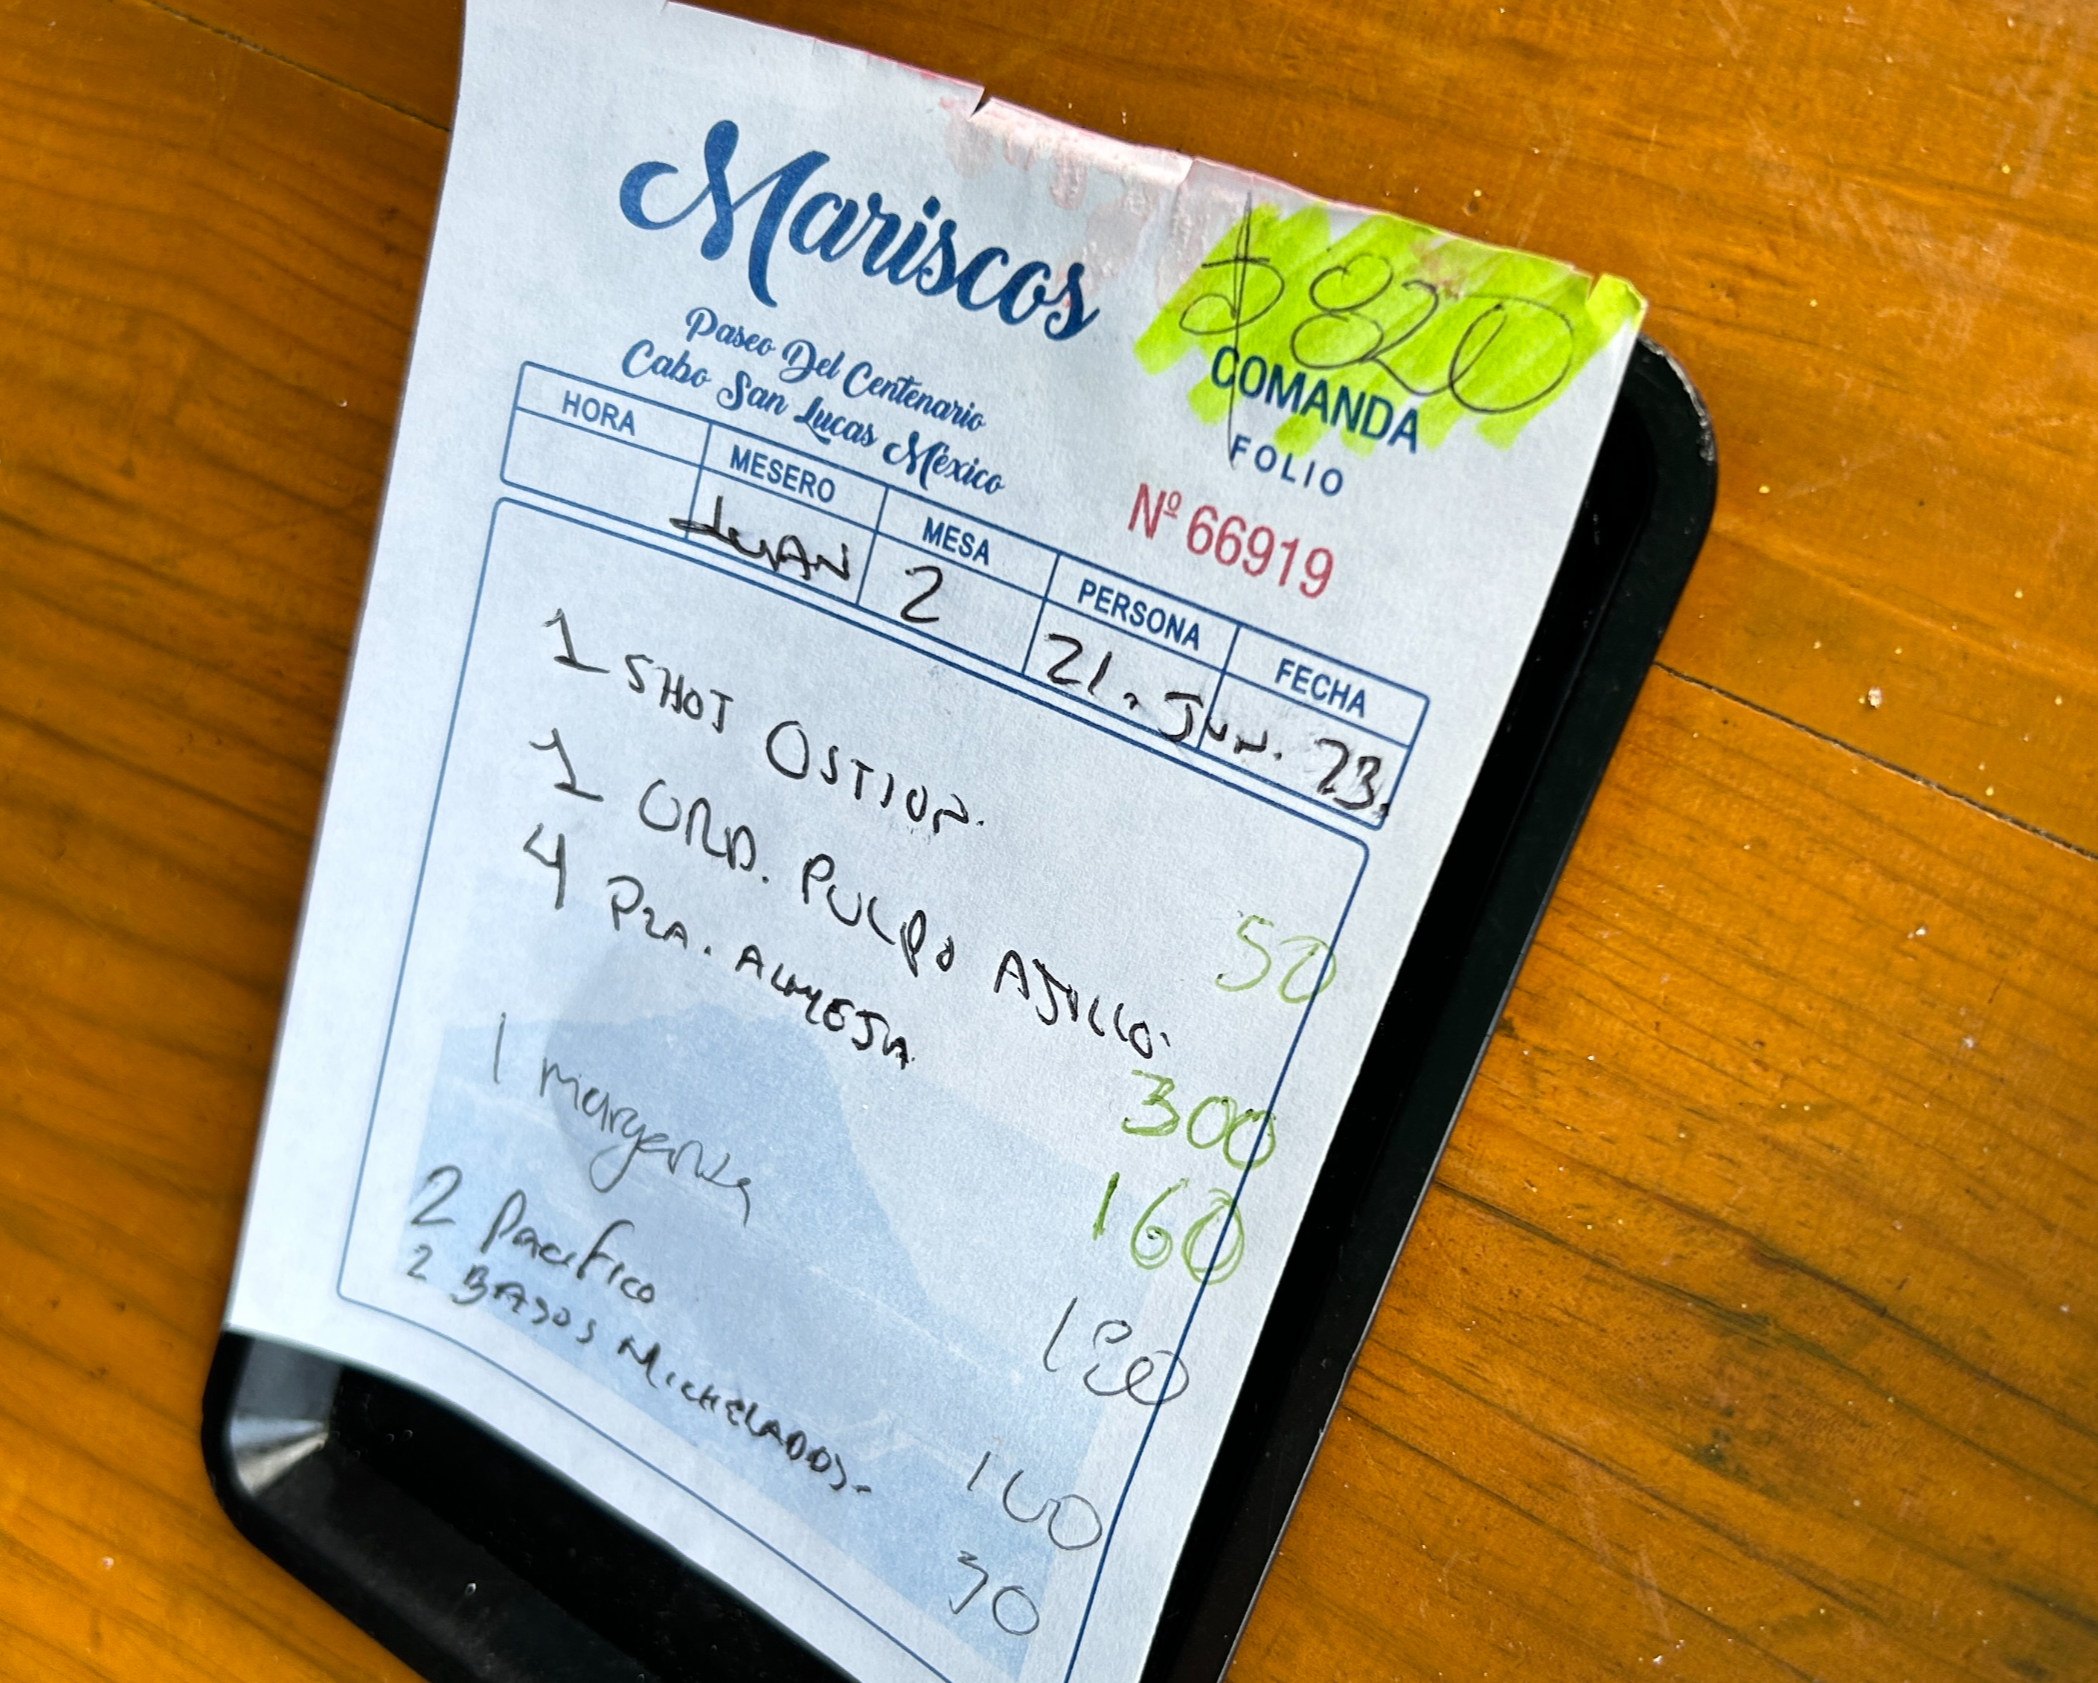 Mariscos
Paseo Del Centenario
Cabo San Lucas México
$820
COMANDA
FOLIO
Nº 66919
HORA MESERO MESA PERSONA FECHA
JUAN 2 21. Jun. 23.
1 SHOT OSTION. 50
1 ORD. PULPO AJILLO. 300
4 PZA. ALMEJA 160
1 margarita 180
2 Pacifico 100
2 BASOS MICHELADOS. 30